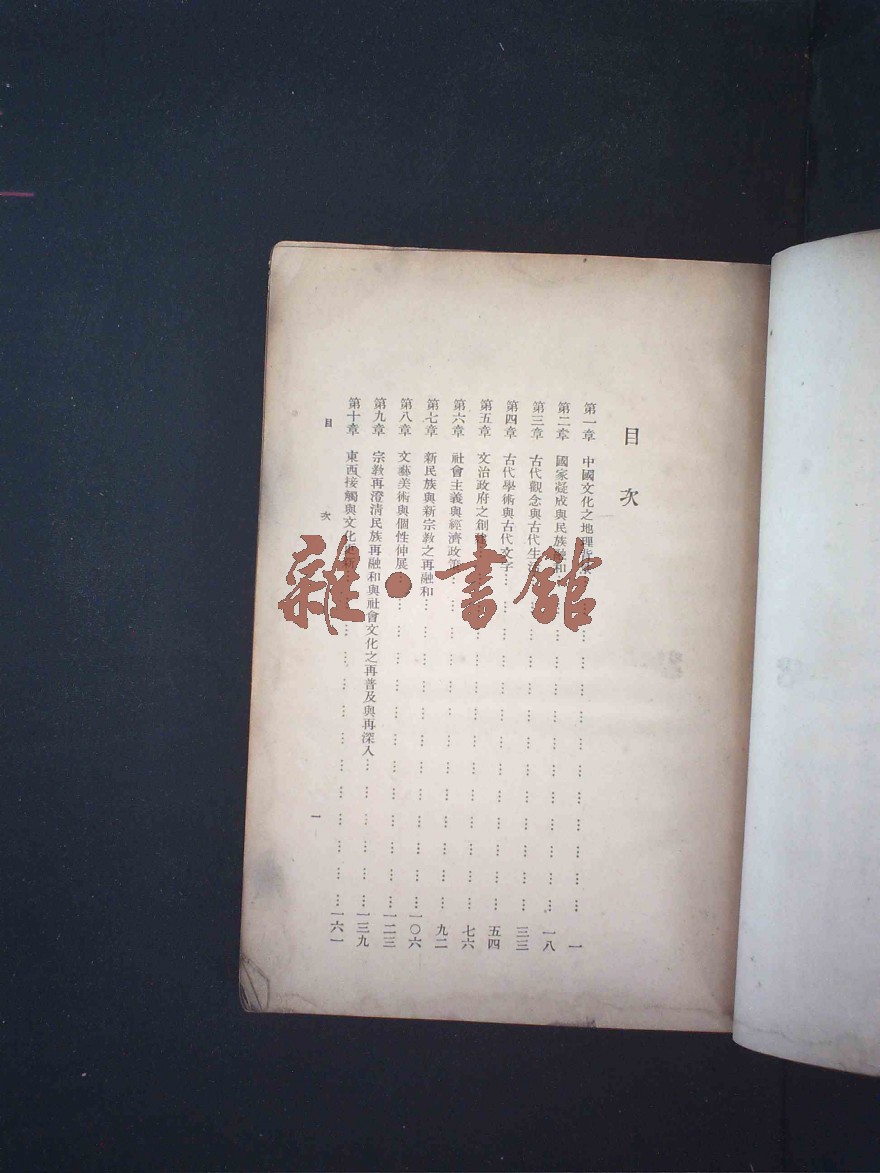 目次
第一章 中國文化之地理背 一
第二章 國家凝成與民族融和 一八
第三章 古代觀念與古代生活 三三
第四章 古代學術與古代文字 五四
第五章 文治政府之創 七六
第六章 社會主義與經濟政策 九二
第七章 新民族與新宗教之再融和 一〇六
第八章 文藝美術與個性伸展 一二三
第九章 宗教再澄清民族再融和與社會文化之再普及與再深入 一三九
第十章 東西接觸與文化更新 一六一
目次
一
雜·書館